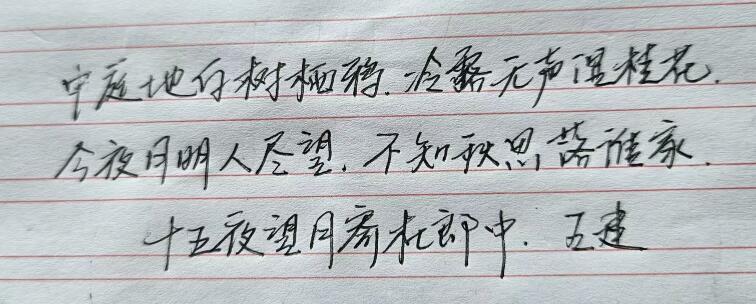 中庭地白树栖鸦.冷露无声湿桂花.
今夜月明人尽望.不知秋思落谁家.
十五夜望月寄杜郎中.王建